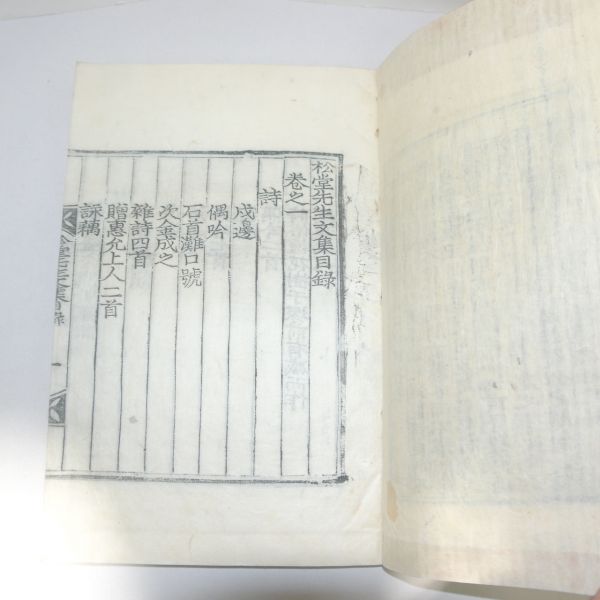 松堂先生文集目錄
卷之一
詩
戍邊
偶吟
石首灘口號
次金成之
雜詩四首
贈惠允上人二首
詠稿
松堂先生文集目錄
一